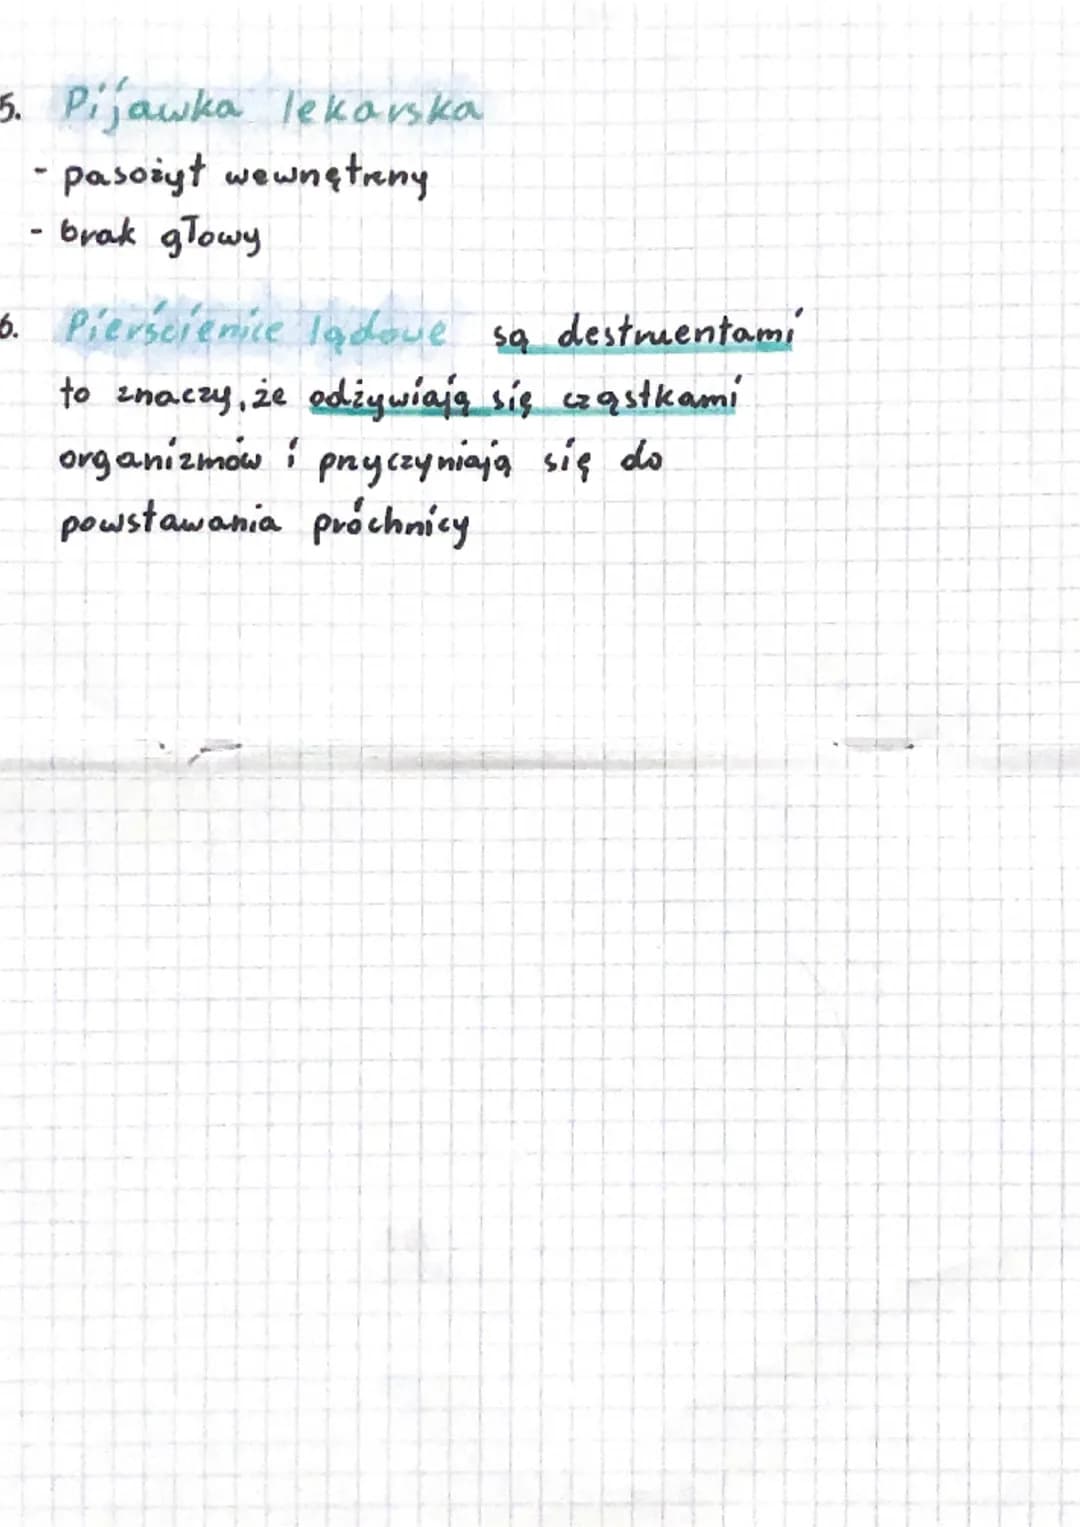 5. Pijawka lekarska
- pasożyt wewnętrzny
- brak głowy
6. Pierścienice lądowe są destruentami
to znaczy, że odżywiają się cząstkami
organizmów i przyczyniają się do
powstawania próchnicy